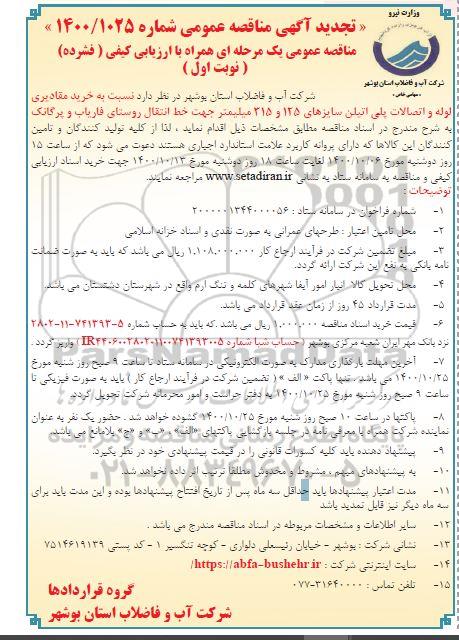 وزارت نیرو
شرکت آب و فاضلاب استان بوشهر
« سهامی خاص »
« تجدید آگهی مناقصه عمومی شماره ۱۴۰۰/۱۰۲۵ »
مناقصه عمومی یک مرحله ای همراه با ارزیابی کیفی ( فشرده)
( نوبت اول )
شرکت آب و فاضلاب استان بوشهر در نظر دارد نسبت به خرید مقادیری
لوله و اتصالات پلی اتیلن سایزهای ۱۲۵ و ۳۱۵ میلیمتر جهت خط انتقال روستای فاریاب و پرگانک
به شرح مندرج در اسناد مناقصه مطابق مشخصات ذیل اقدام نماید ، لذا از کلیه تولید کنندگان و تامین
کنندگان این کالاها که دارای پروانه کاربرد علامت استاندارد اجباری هستند دعوت می شود که از ساعت ۱۵
روز دوشنبه مورخ ۱۴۰۰/۱۰/۰۶ لغایت ساعت ۱۸ روز دوشنبه مورخ ۱۴۰۰/۱۰/۱۳ جهت خرید اسناد ارزیابی
کیفی و مناقصه به سامانه ستاد به نشانی www.setadiran.ir مراجعه نمایند.
توضیحات :
۱- شماره فراخوان در سامانه ستاد : ۲۰۰۰۰۰۱۳۴۴۰۰۰۰۵۶
۲- محل تامین اعتبار : طرحهای عمرانی به صورت نقدی و اسناد خزانه اسلامی
۳- مبلغ تضمین شرکت در فرآیند ارجاع کار ۱,۱۰۸,۰۰۰,۰۰۰ ریال می باشد که باید به صورت ضمانت
نامه بانکی به نفع این شرکت ارائه گردد.
۴- محل تحویل کالا انبار امور آبفا شهرهای کلمه و تنگ ارم واقع در شهرستان دشتستان می باشد.
۵- مدت قرارداد ۴۵ روز از زمان عقد قرارداد می باشد.
۶- قیمت خرید اسناد مناقصه ۱,۰۰۰,۰۰۰ ریال می باشد .که باید به حساب شماره ۵-۷۴۱۳۹۳-۱۱-۲۸۰۲
نزد بانک مهر ایران شعبه مرکزی بوشهر ( حساب شبا شماره IR۴۴۰۶۰۰۲۸۰۲۰۱۱۰۰۷۴۱۳۹۳۰۰۵ ) واریز گردد .
۷- آخرین مهلت بارگذاری مدارک به صورت الکترونیکی در سامانه ستاد تا ساعت ۹ صبح روز شنبه مورخ
۱۴۰۰/۱۰/۲۵ می باشد . تنها پاکت « الف »( تضمین شرکت در فرآیند ارجاع کار ) باید به صورت فیزیکی تا
ساعت ۹ صبح روز شنبه مورخ ۱۴۰۰/۱۰/۲۵ به دفتر حراست و امور محرمانه شرکت تحویل گردد.
۸- پاکتها در ساعت ۱۰ صبح روز شنبه مورخ ۱۴۰۰/۱۰/۲۵ گشوده خواهد شد . حضور یک نفر به عنوان
نماینده شرکت همراه با معرفی نامه در جلسه بازگشایی پاکتهای «الف» ، «ب» و «ج» بلامانع می باشد.
۹- پیشنهاد دهنده باید کلیه کسورات قانونی را در قیمت پیشنهادی خود در نظر بگیرد.
۱۰- به پیشنهادهای مبهم ، مشروط و مخدوش مطلقا ترتیب اثر داده نخواهد شد.
۱۱- مدت اعتبار پیشنهادها باید حداقل سه ماه پس از تاریخ افتتاح پیشنهادها بوده و این مدت باید برای
سه ماه دیگر نیز قابل تمدید باشد
۱۲- سایر اطلاعات و مشخصات مربوطه در اسناد مناقصه مندرج می باشد .
۱۳- نشانی شرکت : بوشهر - خیابان رئیسعلی دلواری - کوچه تنگسیر ۱ - کد پستی ۷۵۱۴۶۱۹۱۳۹
۱۴- سایت اینترنتی شرکت : https://abfa-bushehr.ir/
۱۵- تلفن تماس : ۳۱۶۴۰۰۰۰-۰۷۷
گروه قراردادها
شرکت آب و فاضلاب استان بوشهر